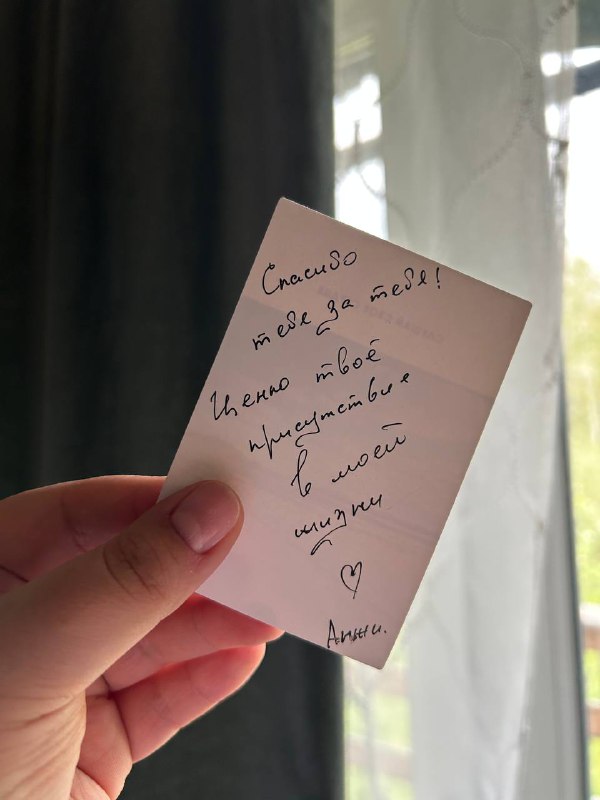 Спасибо
тебе за тебя!
Ценно твоё
присутствие
в моей
жизни
♡
Анжи.